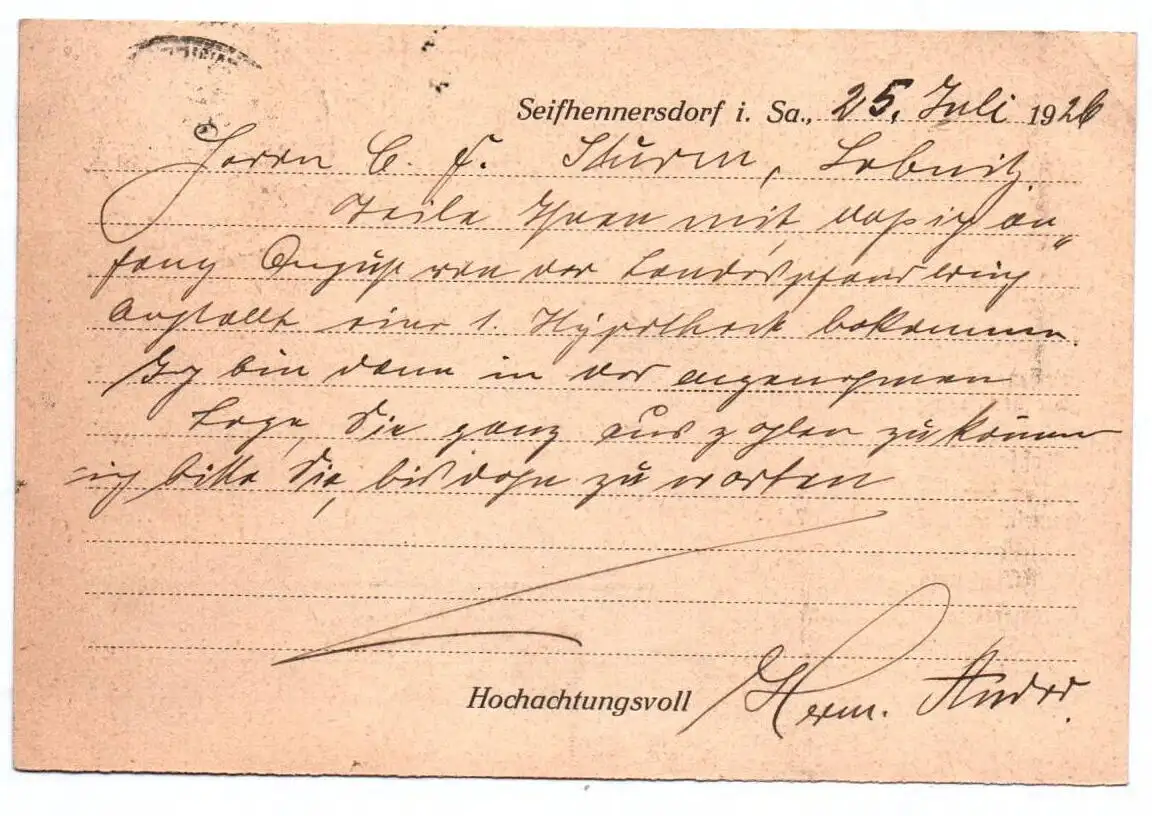 Seifhennersdorf i. Sa., 25. Juli 1926
Herrn C. F. Sturm, Lobnitz
Teile Ihnen mit, daß ich an„
fang August von der Landespfandbrief
Anstallt eine 1. Hypotheck bekomme
Ich bin dann in der angenehmen
Lage, Sie ganz aus zahlen zu können
ich bitte Sie, bis dahn zu warten
Hochachtungsvoll Herm.